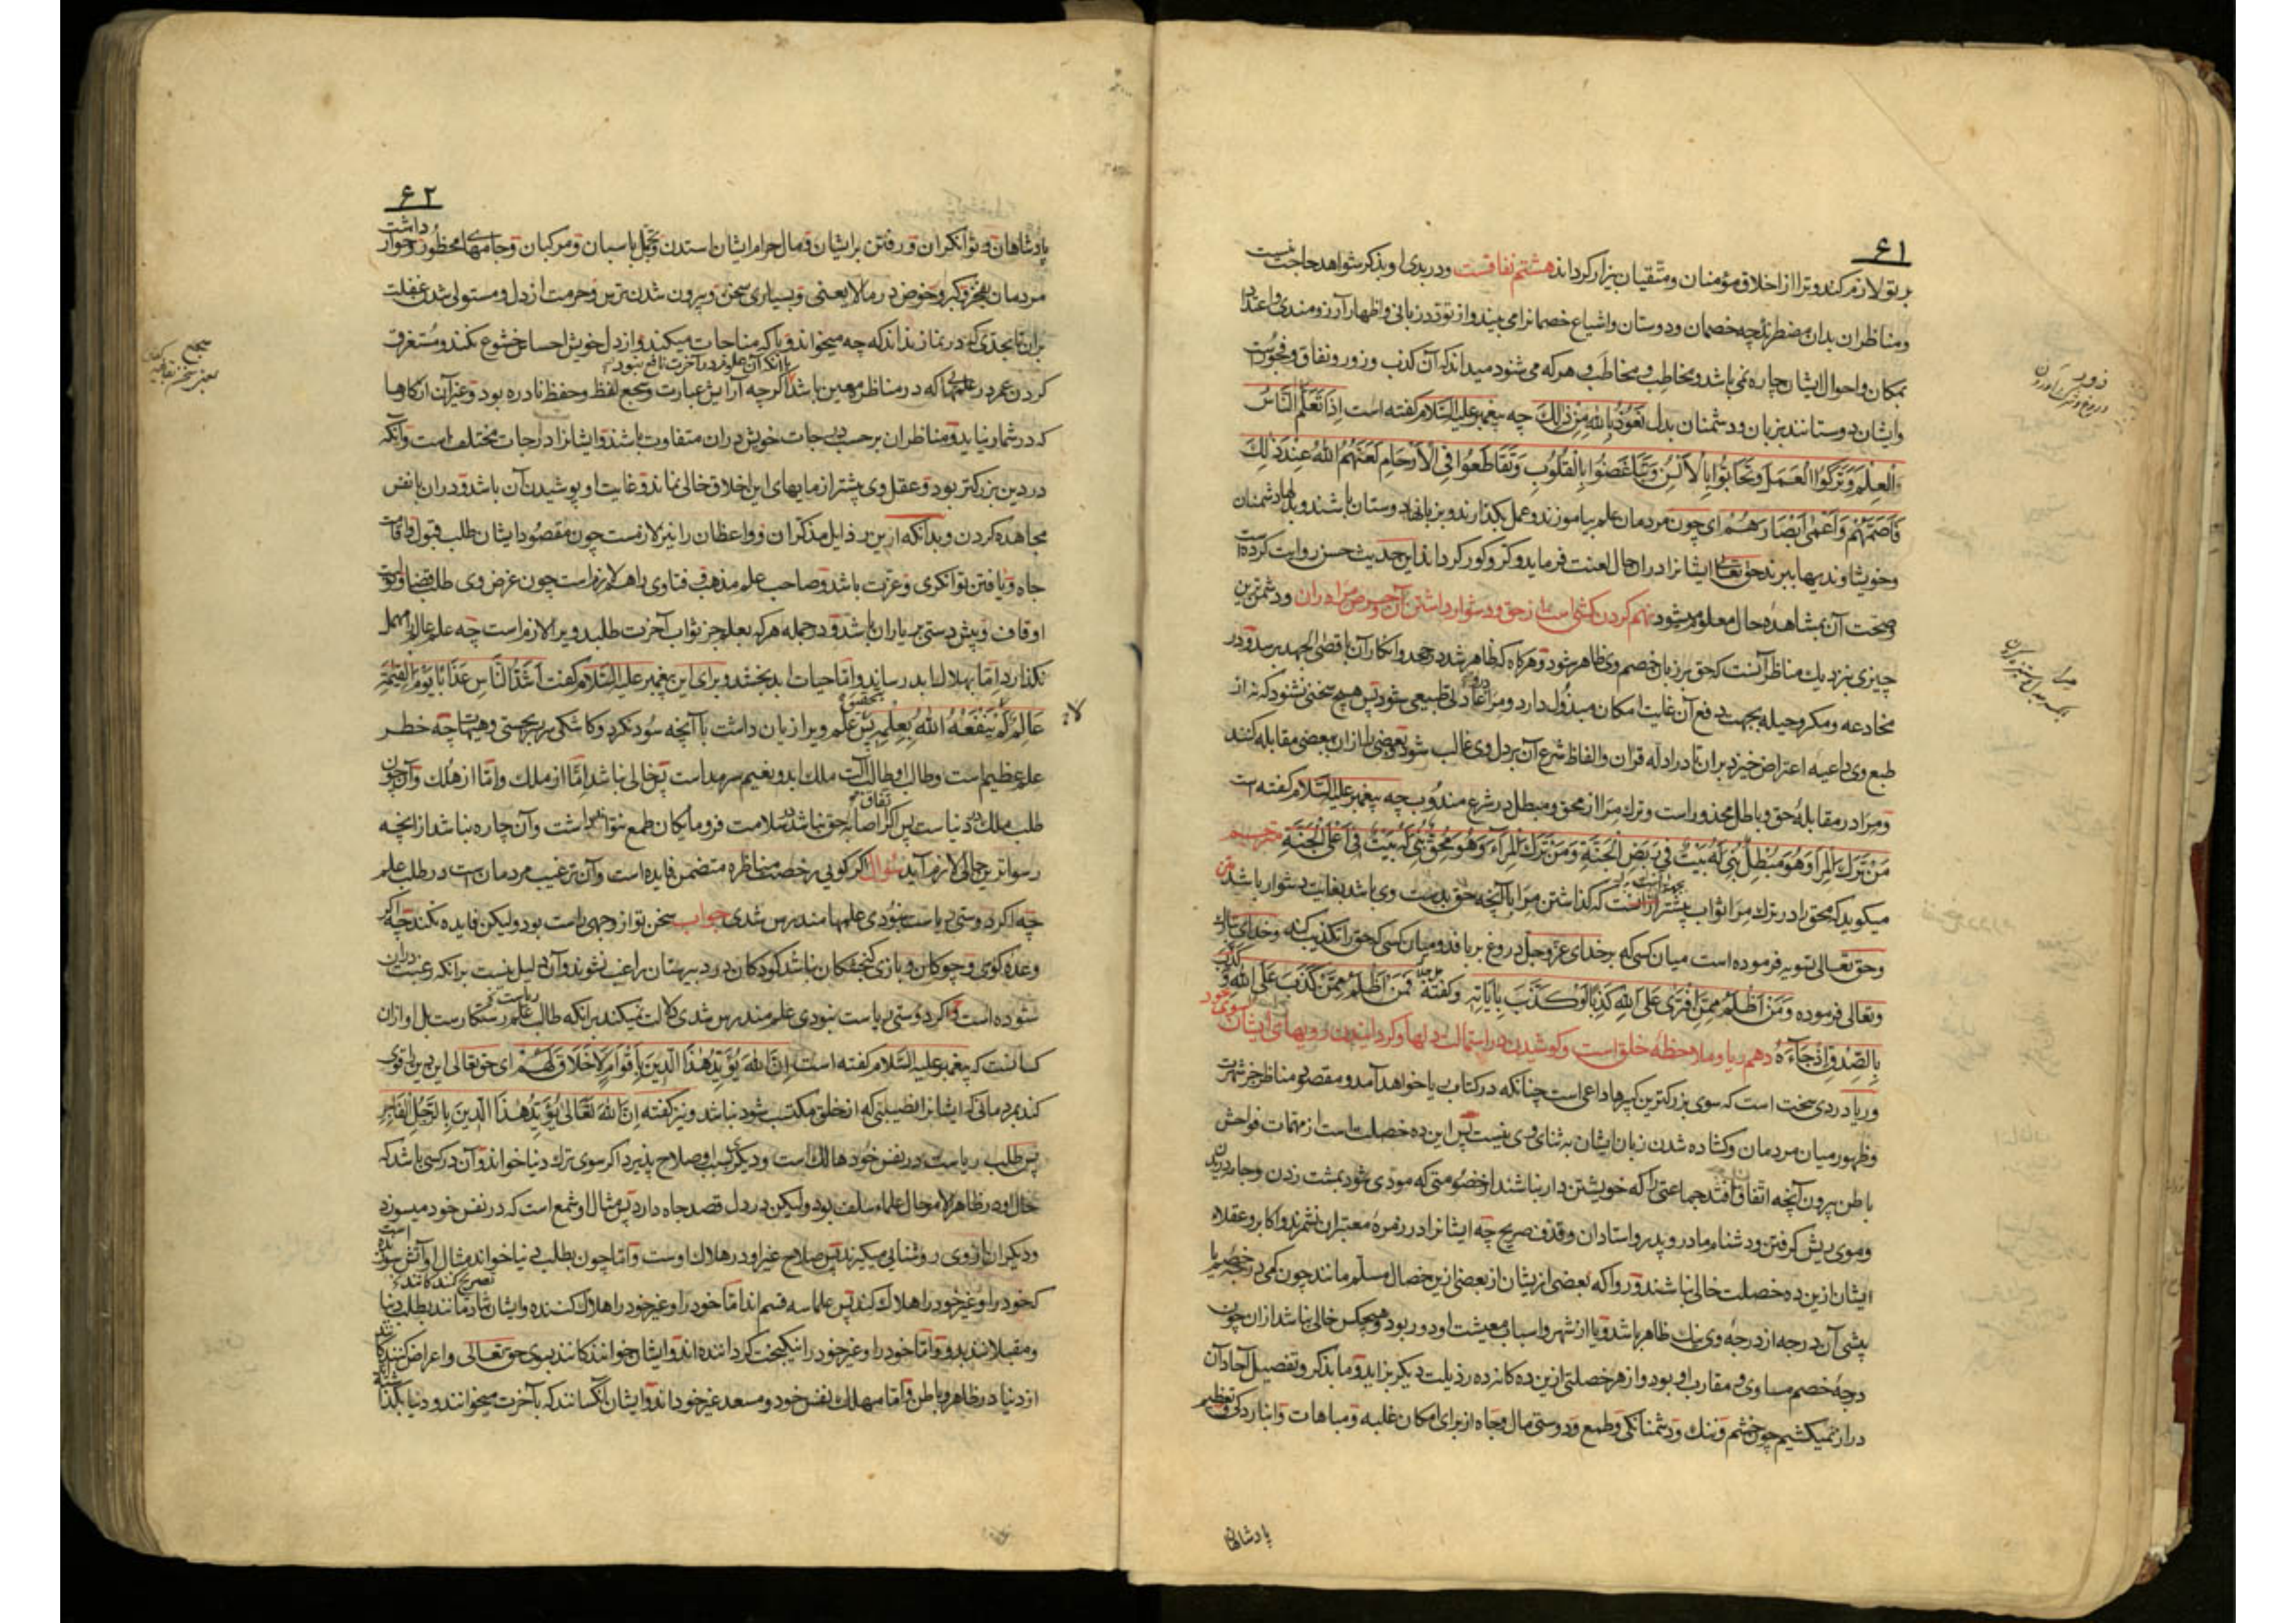 ۶۱
بر تو لازم کند و ترا از اخلاق مؤمنان و متقیان بیزار گرداند هشتم نفاقست و در بدی او بذکر شواهد حاجت نیست
و مناظران بدان مضطرند چه خصمان و دوستان و اشیاع خصمانرا می بیند و از تودد زبانی و اظهار آرزومندی و اعتداد
بمکان و احوال ایشان چاره نمی باشد و مخاطِب و مخاطَب و هر که می شنود میداند که آن کذب و زور و نفاق و فجورست
و ایشان دوستانند بزبان و دشمنان بدل نعوذ بالله من ذلك چه پیغمبر علیه السلام گفته است اذا تعلم الناس
العلم و ترکوا العمل و تحابوا بالالسن و تباغضوا بالقلوب و تقاطعوا فی الارحام لعنهم الله عند ذلك
فاصمهم و اعمی ابصارهم ای چون مردمان علم بیاموزند و عمل بگذارند و بزبانها دوستان باشند و بدلها دشمنان
و خویشاوندیها ببرند حق تعالی ایشانرا در ان حال لعنت فرماید و کر و کور گرداند این حدیث حسن روایت کرده است
و صحت آن بمشاهده حال معلوم میشود نهم گردن کشی است از حق و دشوار داشتن آن و حرص مرا دران و دشمن ترین
چیزی نزدیك مناظر آنست که حق بر زبان خصم وی ظاهر شود و هرگاه که ظاهر شد در جحد و انکار آن باقصی الجهد برسد و در
مخادعه و مکر و حیله بجهت دفع آن غایت امکان مبذول دارد و مرا عادتی طبیعی شود پس هیچ سخنی نشنود که نه از
طبع وی داعیه اعتراض خیزد بران تا در ادله قران و الفاظ شرع آن بر دل وی غالب شود و بعضی را ازان ببعضی مقابله کند
و مرا در مقابلهٔ حق و باطل محذورست و ترك مرا از محق و مبطل در شرع مندوب چه پیغمبر علیه السلام گفته است
من ترك المرا و هو مبطل بنی له بیت فی ربض الجنة و من ترك المراء و هو محق بنی له بیت فی اعلی الجنة مترجم
میگوید که محق را در ترك مرا ثواب بیشتر ازانست که گذاشتن مرا با آنچه حق بدست وی باشد بغایت دشوار باشد متن
و حق تعالی تسویه فرموده است میان کسی که بر خدای عز و جل دروغ بر بافد و میان کسی که حق را تکذیب کند
و تعالی فرموده و من اظلم ممن افتری علی الله کذبا او کذب بایاته و گفته فمن اظلم ممن کذب علی الله و کذب
بالصدق اذ جاءه دهم ریا و ملاحظهٔ خلق است و کوشیدن در استمالت دلها و گردانیدن رویهای ایشان سوی خود
و ریا دردی سخت است که سوی بزرگترین کبیرها داعی است چنانکه در کتاب ریا خواهد آمد و مقصود مناظر جز شهرت
و ظهور میان مردمان و گشاده شدن زبان ایشان به ثنای وی نیست پس این ده خصلت است از مهمات فواحش
باطن بیرون آنچه اتفاق افتد جماعتی را که خویشتن دار نباشند از خصومتی که مودی شود بمشت زدن و جامه دریدن
و موی ریش گرفتن و دشنام مادر و پدر و استادان و قذف صریح چه ایشانرا در زمرهٔ معتبران نشمرند و اکابر و عقلاء
ایشان ازین ده خصلت خالی نباشند و روا که بعضی از یشان از بعضی ازین خصال مسلم مانند چون کمی درجه خصم یا
بیشی آن درجه از درجهٔ وی نیك ظاهر باشد و یا از شهر و اسباب معیشت او دور بود و هیچکس خالی نباشد ازان چون
درجهٔ خصم مساوی و مقارب او بود و از هر خصلتی ازین ده گانه ده رذیلت دیگر بزاید و ما بذکر و تفصیل آحاد آن
دراز نمیکشیم چون خشم و ننك و دشمنانگی و طمع و دوستی مال و جاه از برای امکان غلبه و مباهات و تعظیم
پادشاهان
۶۲
پادشاهان و توانگران و رفتن بر ایشان و مال حرام ایشان استدن و تجمل باسپان و مرکبان و جامهای محظور و خوار داشت
مردمان بفخر و کبر و خوض در ما لا یعنی و بسیاری سخن و بیرون شدن ترس و حرمت از دل و مستولی شدن غفلت
بران تا بحدی که در نماز نداند که چه میخواند و با که مناجات میکند و از دل خویش احساس خشوع نکند و مستغرق
با آنکه آن علوم در آخرت نافع نبود
کردن عمر در علمها که در مناظره معین باشد اگرچه آرایش عبارت و سجع لفظ و حفظ نادره بود و غیر آن از کارها
که در شمار نیاید و مناظران بر حسب درجات خویش دران متفاوت باشند و ایشانرا درجات مختلف است و آنکه
در دین بزرگتر بود و عقل وی بیشتر از مایهای این اخلاق خالی نماند و غایت او پوشیدن آن باشد و دران با نفس
مجاهده کردن و بدانکه ازین رذایل مذکران و واعظان را نیز لازمست چون مقصود ایشان طلب قبول و اقامت
جاه و یافتن توانگری و عزت باشد و صاحب علم مذهب و فتاوی را هم لازم است چون غرض وی طلب قضا و تولیت
اوقاف و پیش دستی بر یاران باشد و در جمله هر که بعلم جز ثواب آخرت طلبد ویرا لازم است چه علم عالم را مهمل
نگذارد اما بهلاك ابد رساند و اما حیات ابد بخشد و برای این پیغمبر علیه السلام گفت اشد الناس عذابا یوم القیمة
عالم لم ینفعه الله بعلمه پس علم ویرا زیان داشت با آنچه سود نکرد و کاشکی سر بسر بجستی و هیهات چه خطر
علم عظیم است و طالب او طالب ملك ابد و نعیم سرمد است پس خالی نباشد اما از ملك و اما از هلك و آن چون
طلب ملك دنیا ست پس اگر اصابت حق نباشد در سلامت فرومایگان طمع نتوان داشت و آن چاره نباشد از آنچه
رسواترین حالی لازم آید سوال اگر گویی رخصت مناظره متضمن فایده است و آن ترغیب مردمان است در طلب علم
چه اگر دوستی ریاست نبودی علمها مندرس شدی جواب سخن تو از وجهی راست بود و لیکن فایده نکند چه اگر
وعده گوی و چوگان و بازی گنجشکان نباشد کودکان در دبیرستان راغب نشوند و آن دلیل نیست بر آنکه رغبت دران
ستوده است و اگر دوستی ریاست نبودی علم مندرس شدی دلالت نمیکند بر آنکه طالب ریاست رستگارست بل او ازان
کسانست که پیغمبر علیه السلام گفته است ان الله یؤید هذا الدین باقوام لا خلاق لهم ای حق تعالی این دین را قوی
کند بمردمانی که ایشانرا نصیبی که از خلق مکتسب شود نباشد و نیز گفته ان الله تعالی یؤید هذا الدین بالرجل الفاجر
پس طلب ریاست در نفس خود هالك است و دیگری بسبب او صلاح پذیرد اگر سوی ترك دنیا خواند و آن در کسی باشد که
حال او در ظاهر الامر حال علماء سلف بود و لیکن در دل قصد جاه دارد پس مثال او شمع است که در نفس خود میسوزد
و دیگران از وی روشنایی میگیرند پس صلاح غیر او در هلاك اوست و اما چون بطلب دنیا خواند مثال او آتش سوزنده است
که خود را و غیر خود را هلاك کند پس علما سه قسم اند اما خود را و غیر خود را هلاك کننده و ایشان تصریح کنندگانند بطلب دنیا
و مقبلانند بدو و اما خود را و غیر خود را نیکبخت گرداننده اند و ایشان خوانندگانند سوی حق تعالی و اعراض کنندگانند
از دنیا در ظاهر و باطن و اما مهلك نفس خود و مسعد غیر خود اند و ایشان آنکسانند که بآخرت میخوانند و دنیا بگذاشته